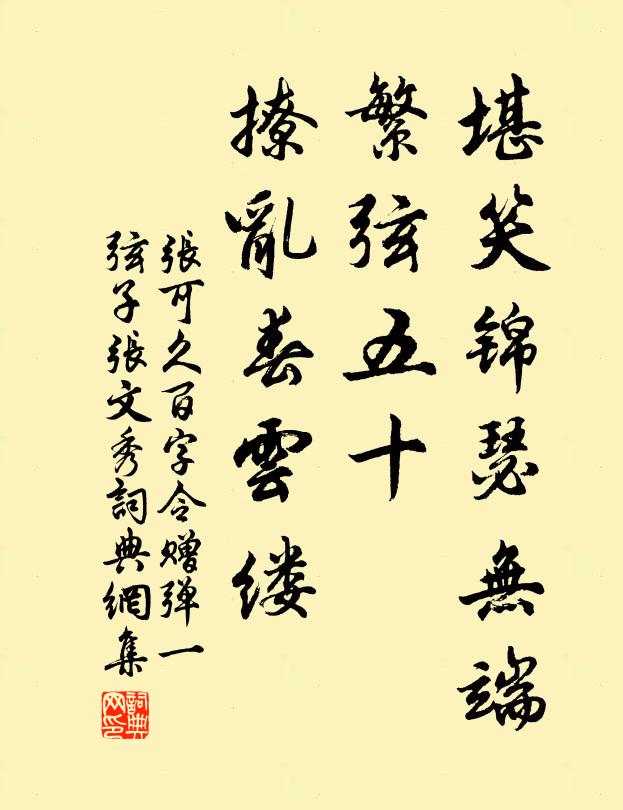 堪笑锦瑟無端
繁弦五十
撩亂春雲缕
張可久百字令赠弹一
弦子張文秀詞典網集
詞典
网印